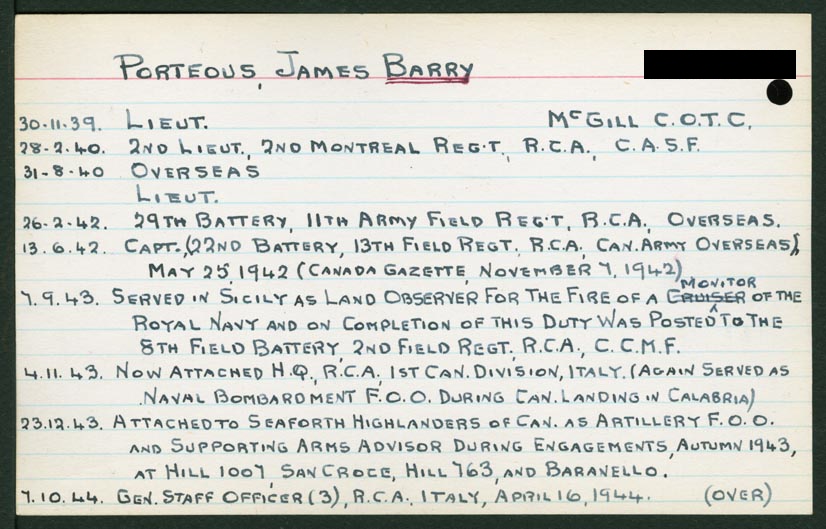 PORTEOUS, JAMES BARRY
30.11.39. LIEUT. McGILL C.O.T.C.
28-2.40. 2ND LIEUT., 2ND MONTREAL REG'T., R.C.A., C.A.S.F.
31-8-40 OVERSEAS
LIEUT.
26-2.42. 29TH BATTERY, 11TH ARMY FIELD REG'T, R.C.A., OVERSEAS.
13.6.42. CAPT. (22ND BATTERY, 13TH FIELD REGT., R.C.A., CAN. ARMY OVERSEAS),
MAY 25, 1942 (CANADA GAZETTE, NOVEMBER 7, 1942)
MONITOR
7.9.43. SERVED IN SICILY AS LAND OBSERVER FOR THE FIRE OF A CRUISER OF THE
ROYAL NAVY AND ON COMPLETION OF THIS DUTY WAS POSTED TO THE
8TH FIELD BATTERY, 2ND FIELD REGT., R.C.A., C.C.M.F.
4.11.43. NOW ATTACHED H.Q., R.C.A., 1ST CAN. DIVISION, ITALY. (AGAIN SERVED AS
NAVAL BOMBARDMENT F.O.O. DURING CAN. LANDING IN CALABRIA)
23.12.43. ATTACHED TO SEAFORTH HIGHLANDERS OF CAN. AS ARTILLERY F.O.O.
AND SUPPORTING ARMS ADVISOR DURING ENGAGEMENTS, AUTUMN 1943,
AT HILL 1007, SAN CROCE, HILL 763, AND BARANELLO.
7.10.44. GEN. STAFF OFFICER (3), R.C.A., ITALY, APRIL 16, 1944. (OVER)